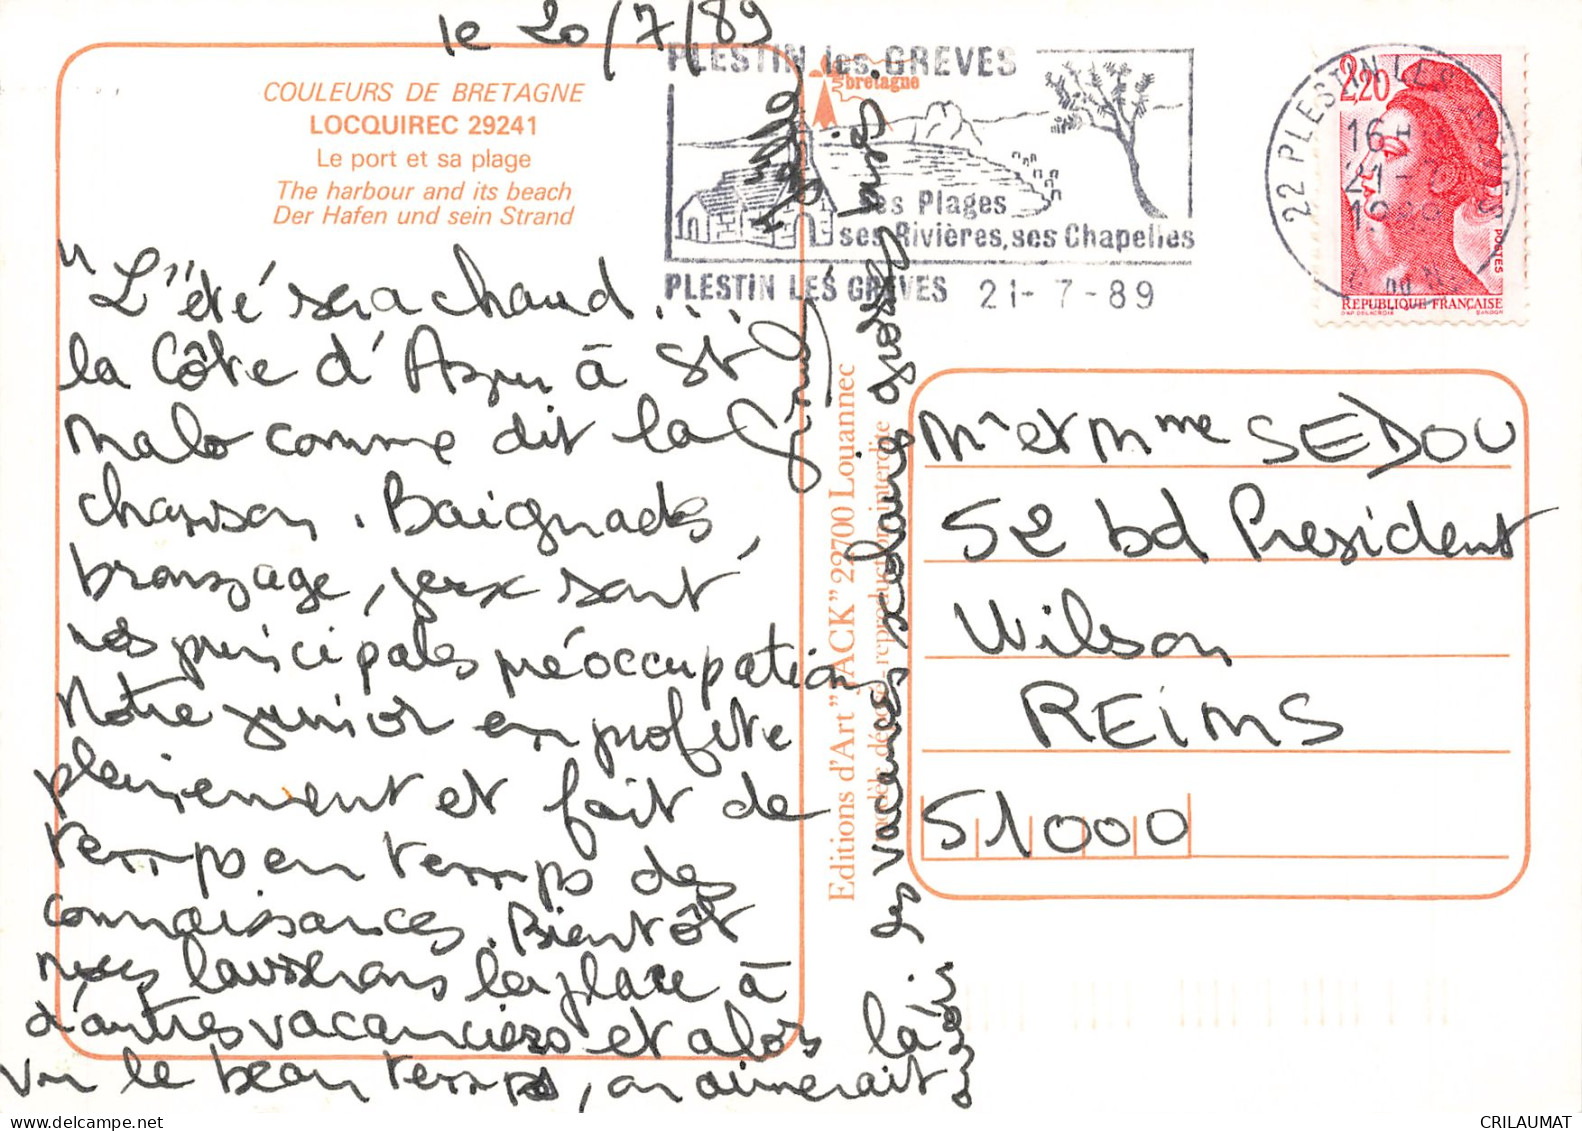 le 20/7/89
COULEURS DE BRETAGNE
LOCQUIREC 29241
Le port et sa plage
The harbour and its beach
Der Hafen und sein Strand
"L'été sera chaud...
la Côte d'Azur à St
Malo comme dit la
chanson. Baignades,
bronzage, jeux sont
nos principales préoccupations
Notre junior en profite
pleinement et fait de
temps en temps des
connaissances. Bientôt
nous laisserons la place à
d'autres vacanciers et alors là
vu le beau temps, on aimerait
les vacances prolongées
Grosses Bises
PLESTIN les GREVES
bretagne
ses Plages
ses Rivières, ses Chapelles
PLESTIN LES GREVES 21-7-89
22 PLESTIN LES GREVES
16 H
21-7
1989
2,20
POSTES
REPUBLIQUE FRANÇAISE
D'AP. DELACROIX GANDON
Editions d'Art "JACK" 22700 Louannec
modèle déposé - reproduction interdite
Mr et Mme SEDOU
52 bd President
Wilson
REIMS
51000
CRILAUMAT